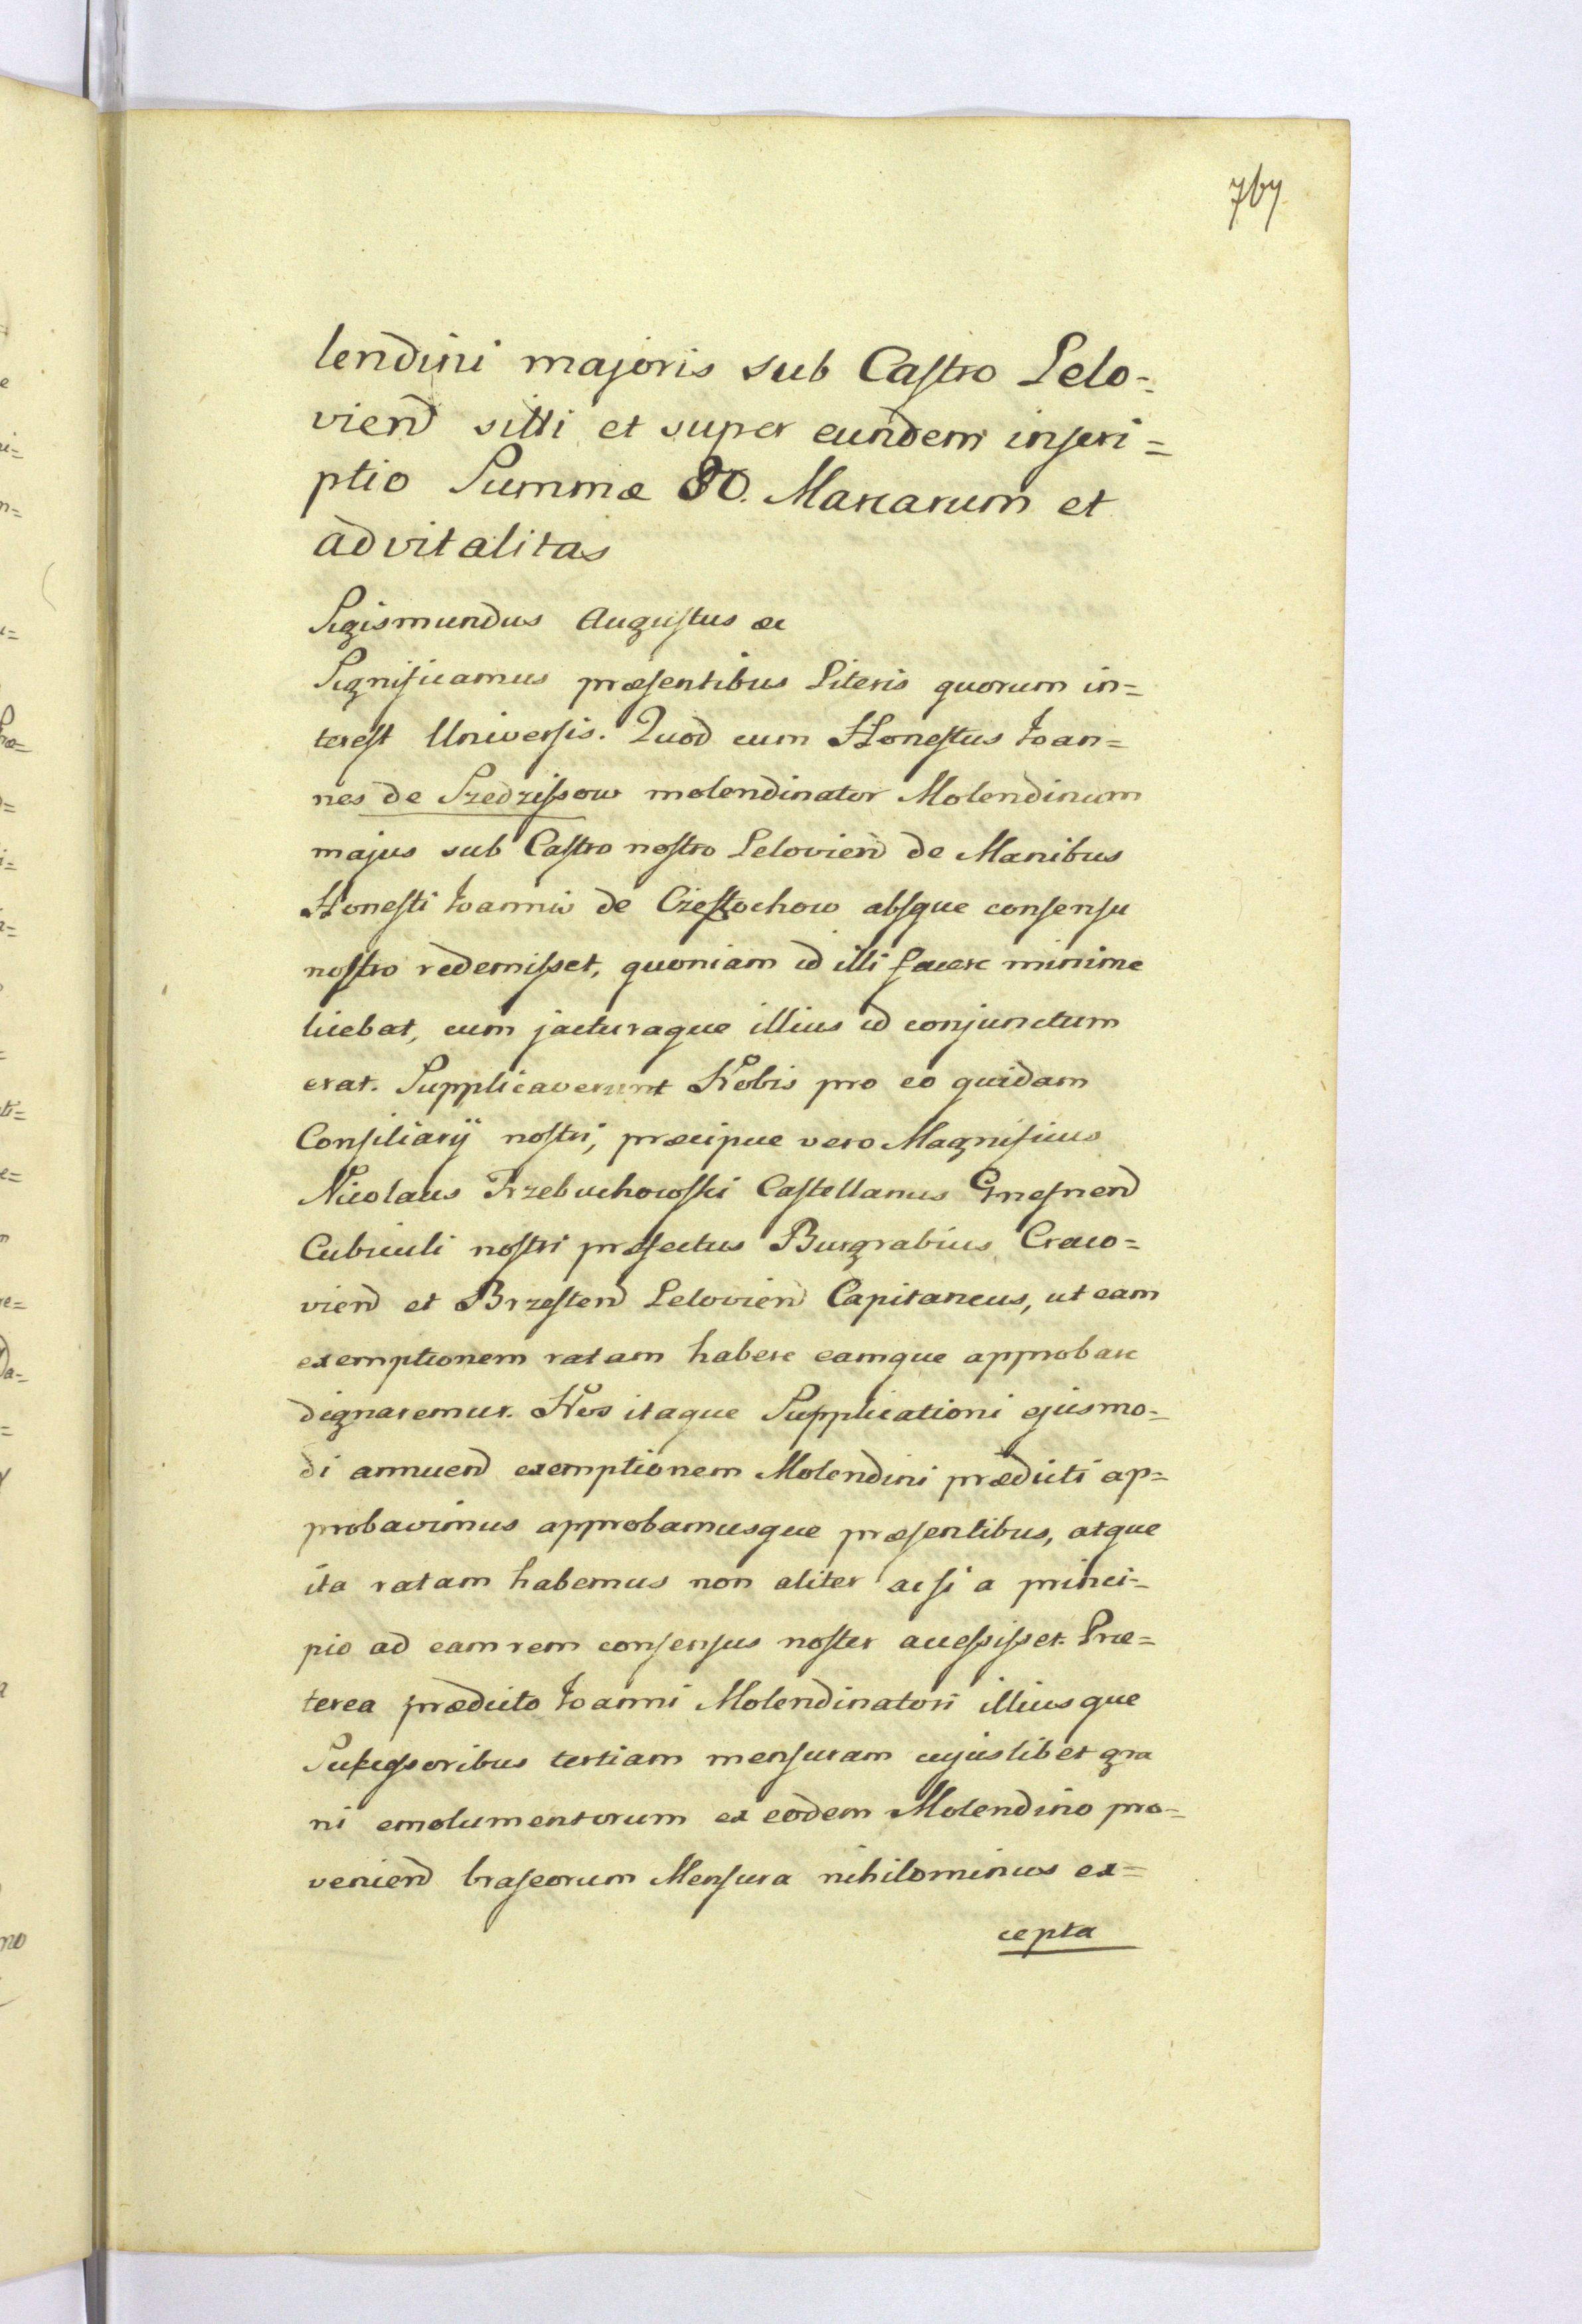 767
lendini majoris sub Castro Lelo=
vien̄d sitti et super eundem inscri=
ptio Summæ 80. Marcarum et
advitalitas
Sigismundus Augustus &c
Significamus præsentibus Literis quorum in=
terest Universis. Quod cum Honestus Joan=
nes de Szedzissow molendinator Molendinum
majus sub Castro nostro Leloviend de Manibus
Honesti Joannis de Częstochow absque consensu
nostro redemisset, quoniam id illi facere minime
licebat, cum jacturaque illius id conjunctum
erat. Supplicaverunt Nobis pro eo quidam
Consiliarij nostri, præcipue vero Magnificus
Nicolaus Trzebuchowski Castellanus Gnesnend
Cubiculi nostri præfectus Burgrabius Craco=
viend et Brzestend Leloviend Capitaneus, ut eam
exemptionem ratam habere eamque approbare
dignaremur. Nos itaque Supplicationi ejusmo=
di annuend exemptionem Molendini prædicti ap=
probavimus approbamusque præsentibus, atque
ita ratam habemus non aliter acsi a princi=
pio ad eam rem consensus noster accessisset. Præ=
terea prædicto Joanni Molendinatori illiusque
Successoribus tertiam mensuram cujuslibet gra
ni emolumentorum ex eodem Molendino pro=
veniend braseorum Mensura nihilominus ex=
cepta